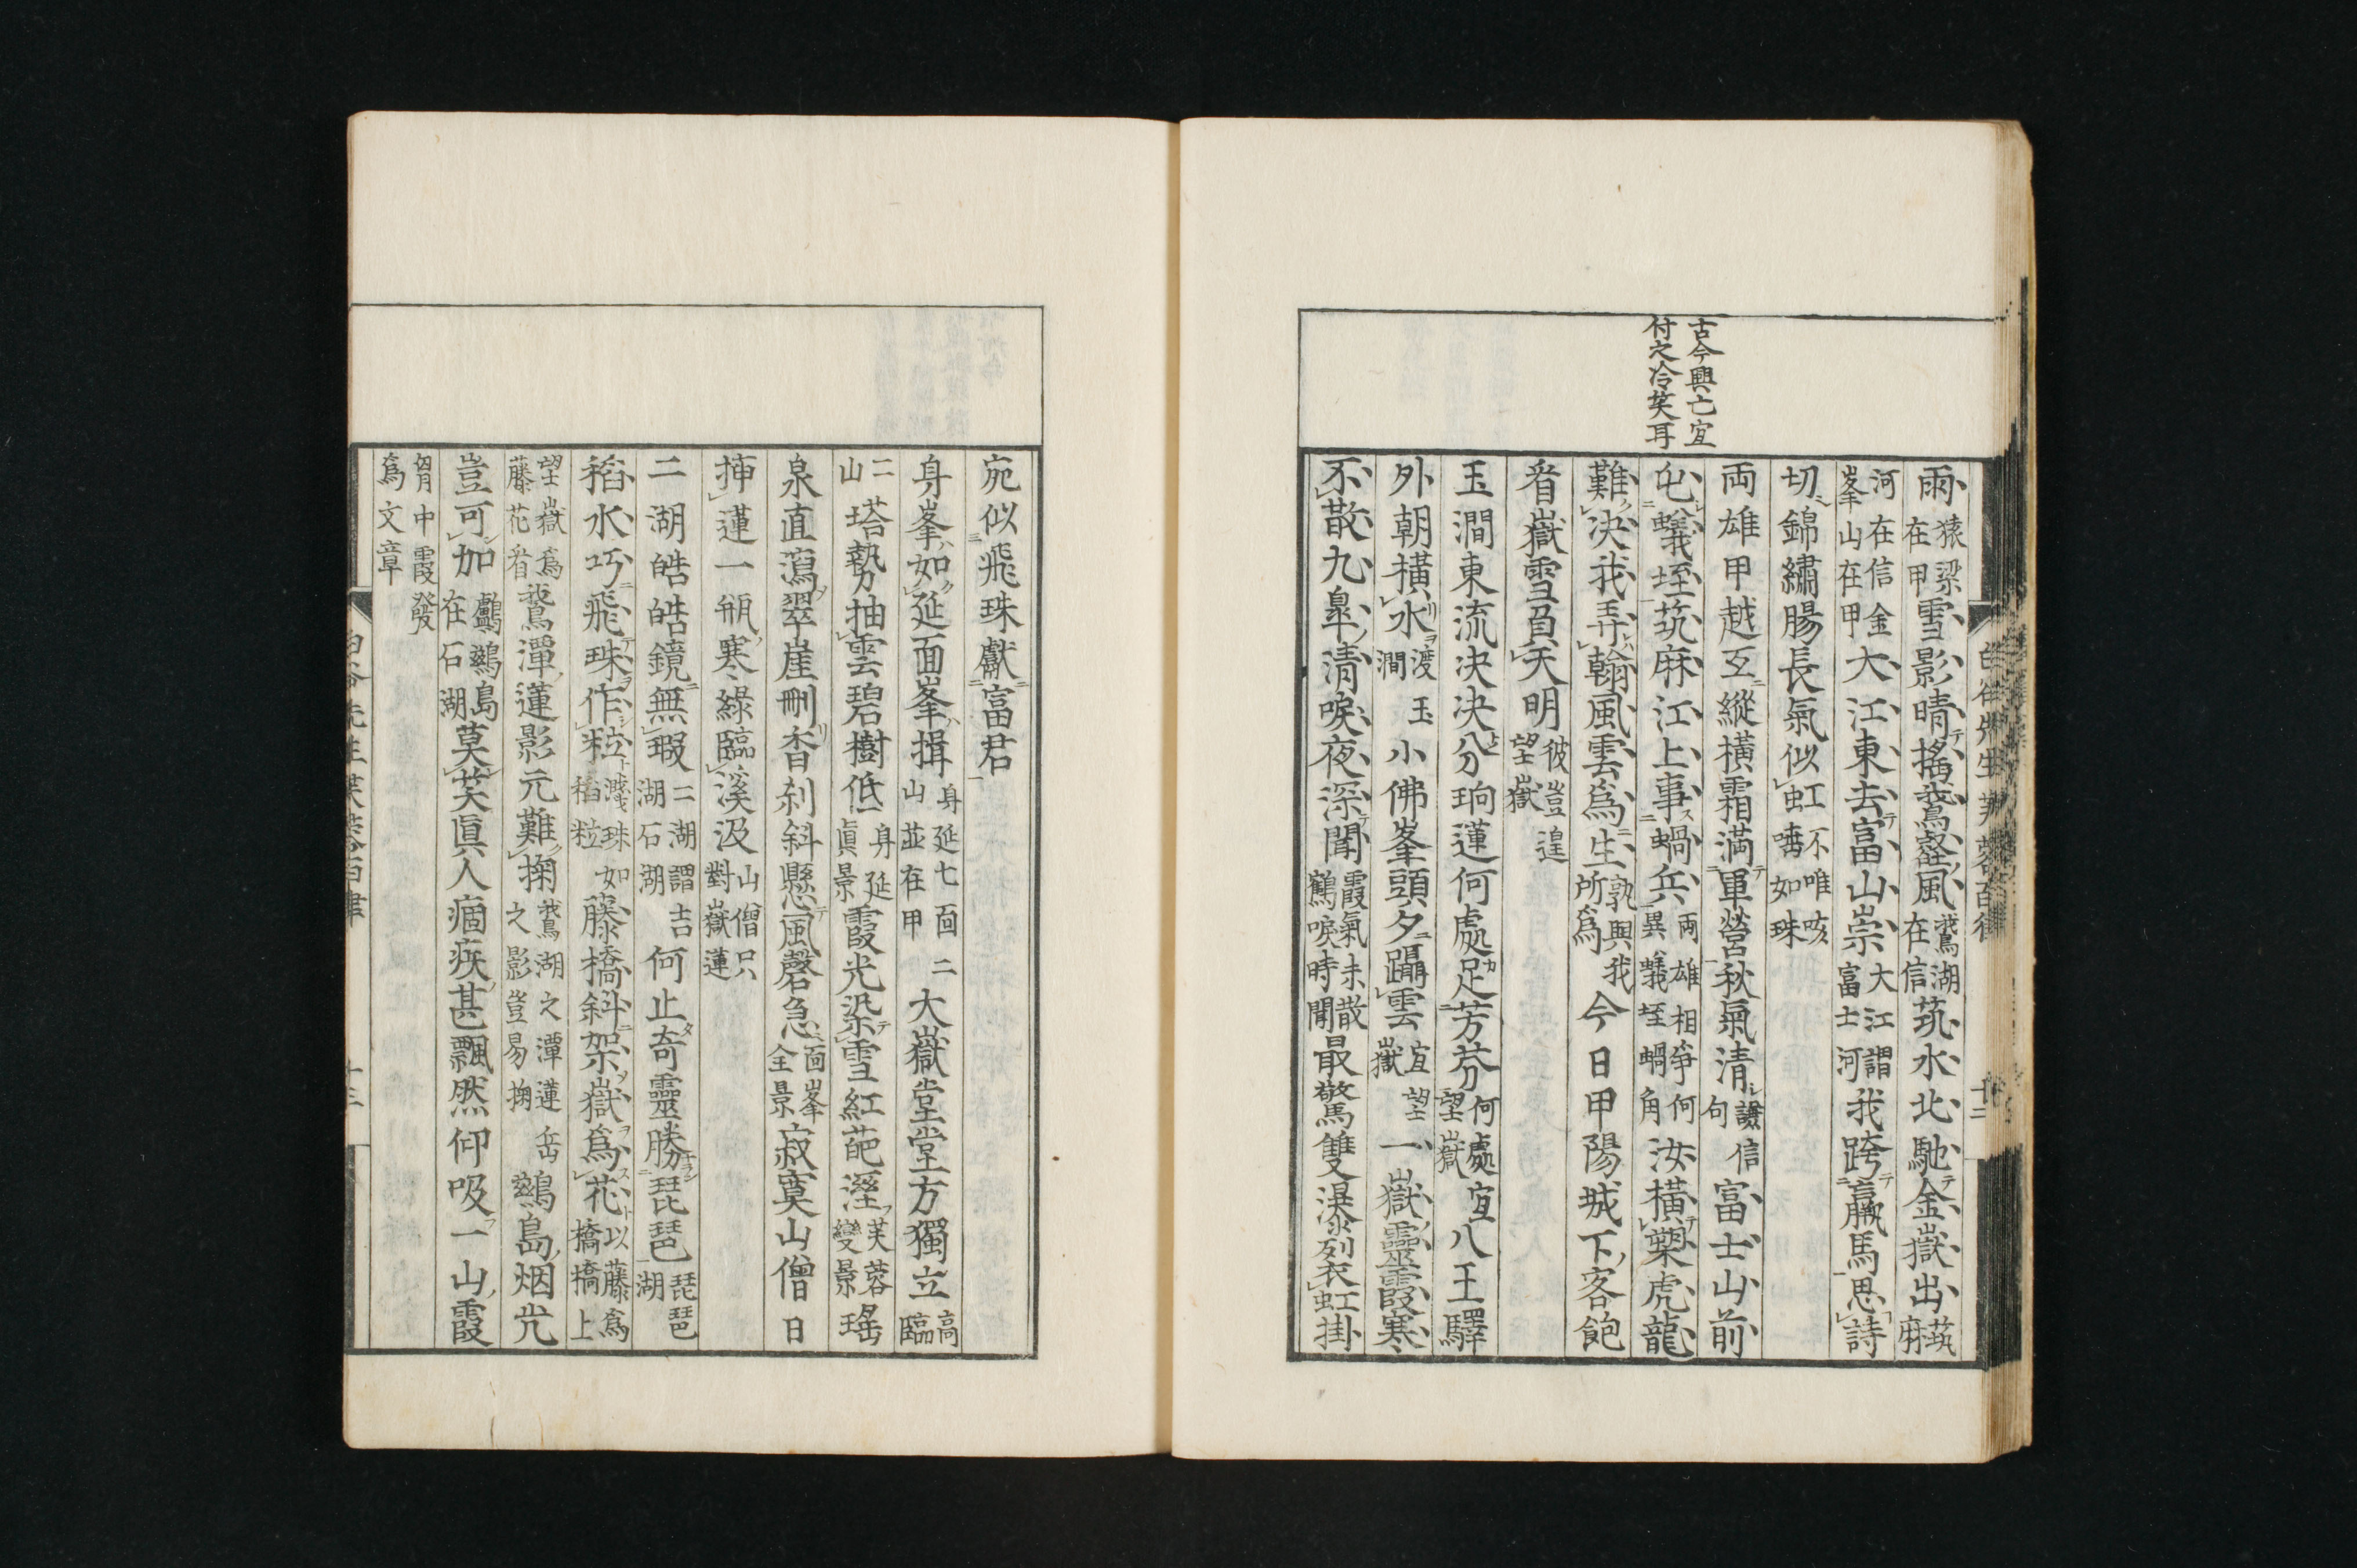 古今興亡宜
付之冷笑耳
雨猿梁在甲雪影晴搖鵞壑風鵞湖在信筑水北馳金嶽出筑麻
河在信金峯山在甲大江東去富山崇大江謂富士河我跨羸馬思詩
切錦繡腸長氣似虹不唯咳唾如珠
両雄甲越互縱横霜満軍營秋氣清謙信句富士山前
屯蟻垤筑麻江上事蝸兵両雄相爭何異蟻垤蝸角汝横槊虎龍
難決我弄翰風雲爲生孰與我所爲今日甲陽城下客飽
看嶽雪負天明彼豈遑望嶽
玉澗東流決決分响蓮何處足芳芬何處宜望嶽八王驛
外朝横水渡玉澗小佛峯頭夕躡雲宜望嶽一嶽靈霞寒
不散九皐清唳夜深聞霞氣未散鶴唳時聞最驚雙瀑列衣虹掛
白谷先生芙蓉百律 十二
宛似飛珠獻富君
身峯如延面峯揖身延七面二山並在甲大嶽堂堂方獨立高臨
二山塔勢抽雲碧樹低身延眞景霞光染雪紅葩溼芙蓉變景瑤
泉直瀉翠崖刪香刹斜懸風磬急面峯全景寂寞山僧日
揷蓮一瓶寒綠臨溪汲山僧只對嶽蓮
二湖皓皓鏡無瑕二湖謂吉湖石湖何止奇靈勝琵琶琵琶湖
稻水巧飛珠作粒濺珠如稻粒藤橋斜架嶽爲花以藤爲橋橋上
望嶽爲藤花看鵞潭蓮影元難掬鵞湖之潭蓮岳之影豈易掬鷀島烟光
豈可加鸕鷀島在石湖莫笑眞人痼疾甚飄然仰吸一山霞
胷中霞發爲文章
白谷先生芙蓉百律 十三